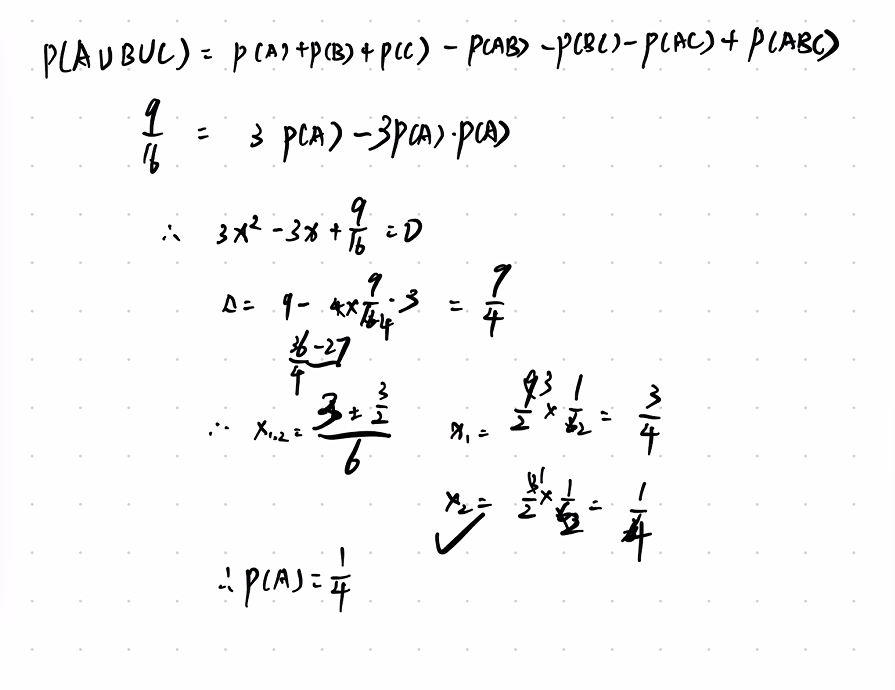 P(A∪B∪C) = P(A)+P(B)+P(C) - P(AB) - P(BC) - P(AC) + P(ABC)
9/16 = 3 P(A) - 3P(A)·P(A)
∴ 3x² - 3x + 9/16 = 0
Δ = 9 - 4×9/16·3 = 9/4
(36-27)/4
∴ x₁,₂ = (3 ± 3/2)/6 x₁ = 9/2 × 1/6 = 3/4
x₂ = 3/2 × 1/6 = 1/4
✓
∴ P(A) = 1/4